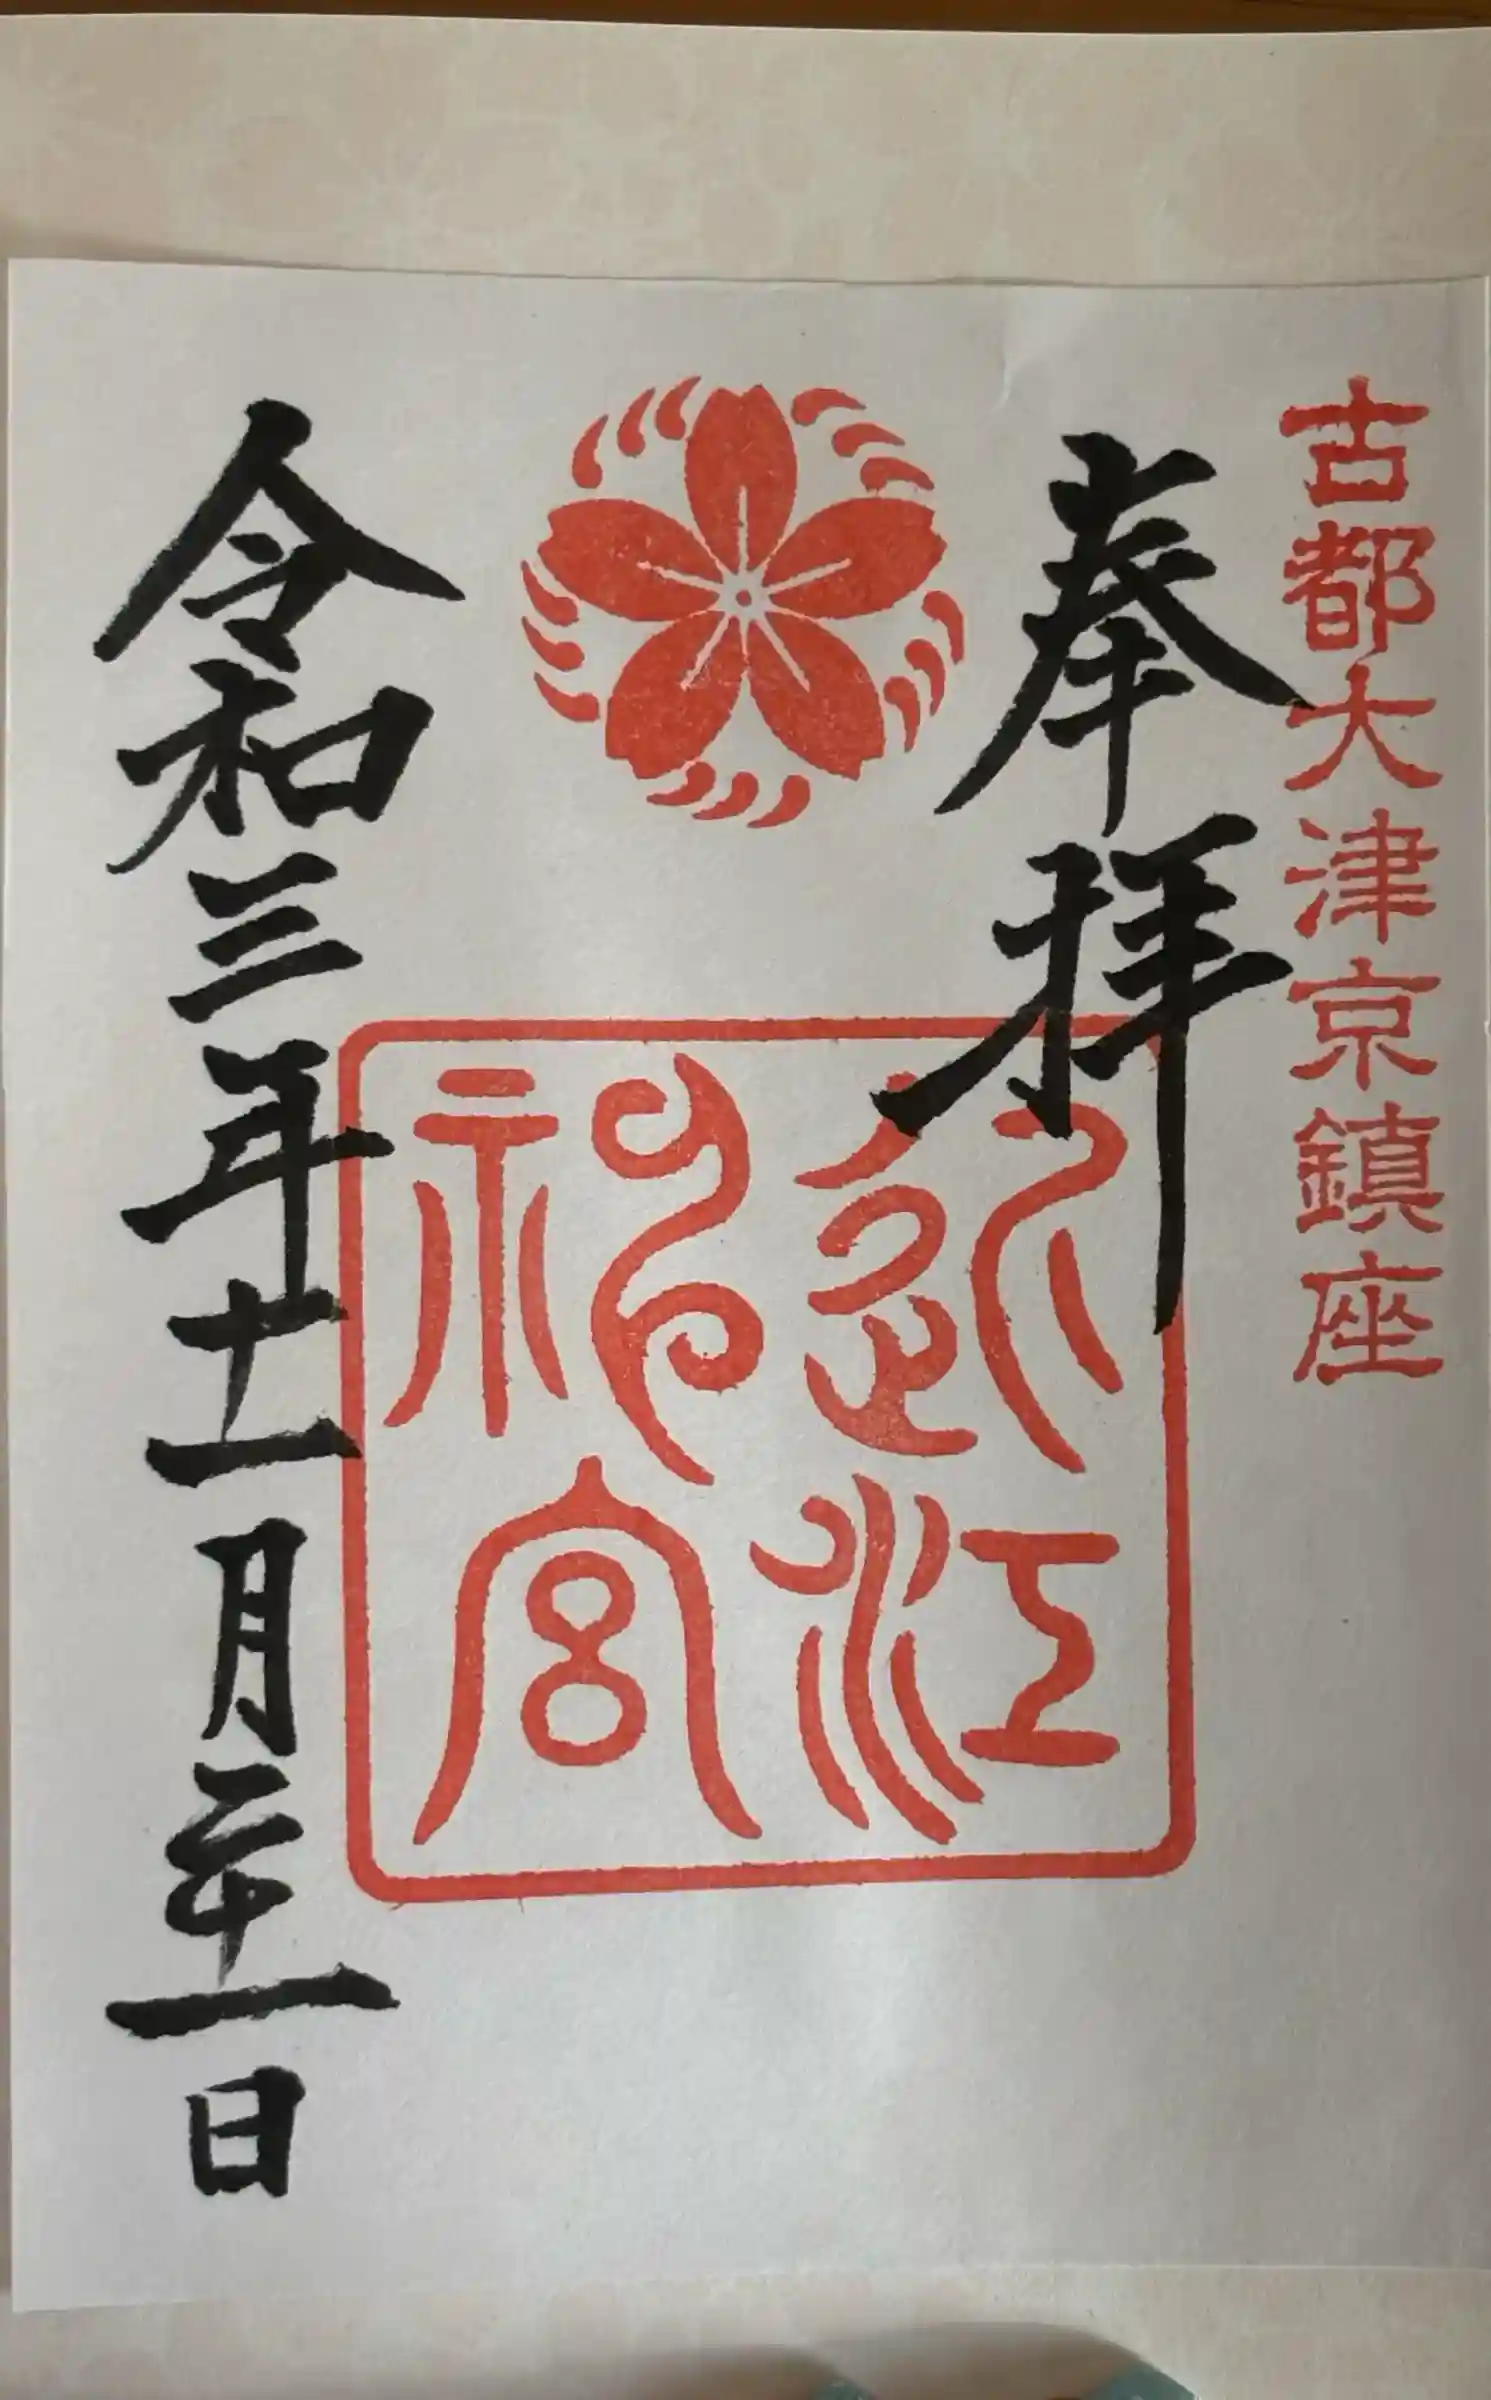 古都大津京鎮座
奉拝
近江
神宮
令和三年十一月二十一日